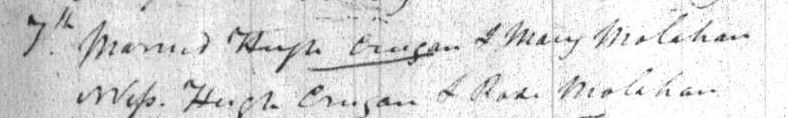 7th. Married Hugh Crugan & Mary Molahan
Wss. Hugh Crugan & Rose Molahan